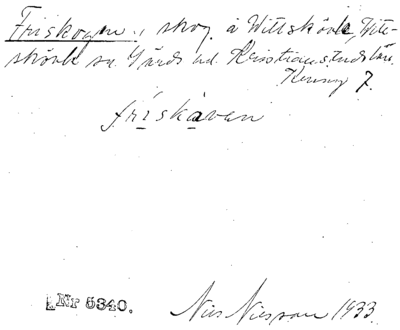 Friskogen, skog å Wittskövle, Vitt-
skövle sn. Gärds hd. Kristianstads län.
7.
friskåven
Nr 5340.
Nils Nilsson 1933.